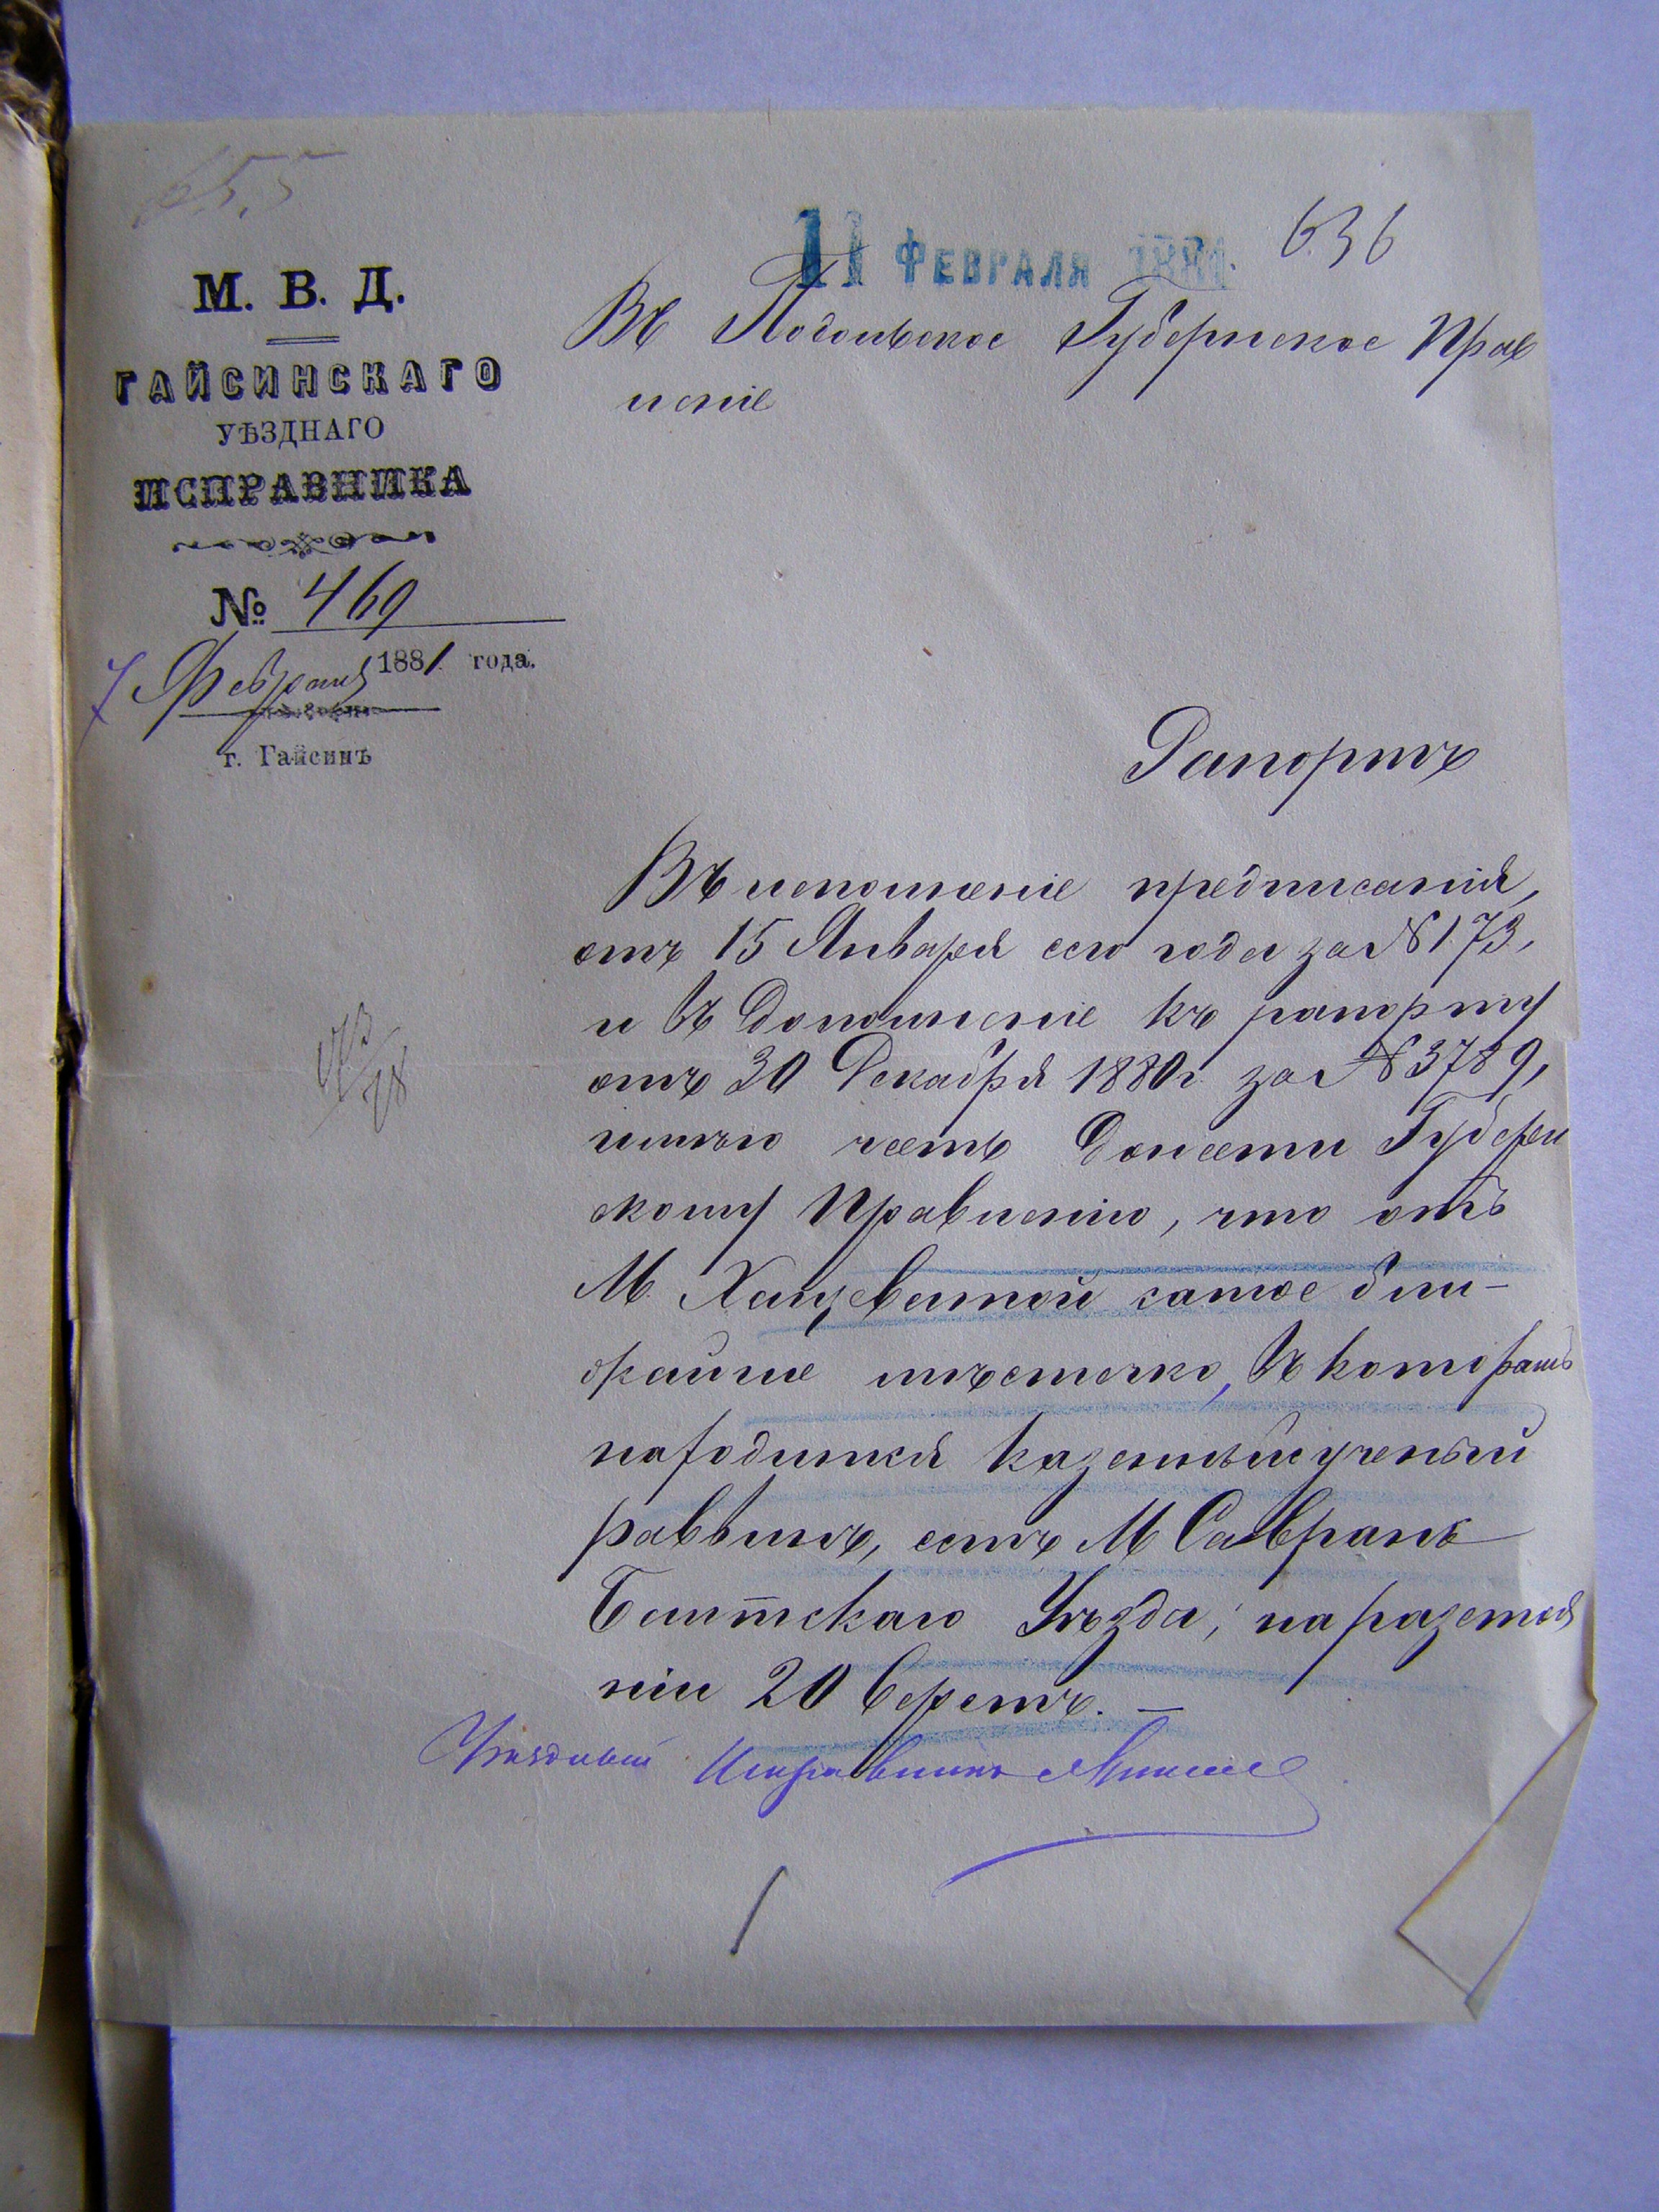 655
11 ФЕВРАЛЯ 1881.
636
М. В. Д.
ГАЙСИНСКАГО
УѢЗДНАГО
ИСПРАВНИКА
№ 469
7 Февраля 1881 года.
г. Гайсинъ
Въ Подольское Губернское Прав
леніе
Рапортъ
Въ исполненіе предписанія,
отъ 15 Января сего года за № 173,
и въ дополненіе къ рапорту
отъ 30 Декабря 1880 г. за № 3789,
имѣю честь донести Губерн
скому Правленію, что отъ
М. Хащеватой самое бли-
жайшее мѣстечко, въ которомъ
находится казенный ученый
раввинъ, есть М Саврань
Балтскаго Уѣзда, на разстоя
ніи 20 верстъ. —
Уѣздный Исправникъ